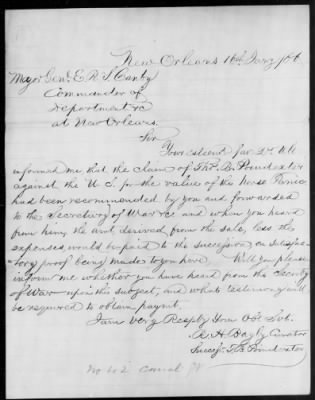 New Orleans 16th Jany /66
Major Genl. E R S Canby
Commander of
Department &c
at New Orleans.
Sir
Your esteemed fav
informed me that the claim of Thos. B. Poindexter
against the U.S. for the value of his Horse Panic
had been recommended by you and forwarded
to the Secretary of War &c and when you heard
from him, the amt derived from the sale, less the
expenses, would be paid to the succession on satisfac-
tory proof being made to you here. Will you please
inform me whether you have heard from the Secretary
of War upon this subject, and what testimony will
be required to obtain paymt.
I am Very Respty Your Obt. Svt.
R. H. Bagby Curator
Success. T B Poindexter
No 602 Canal